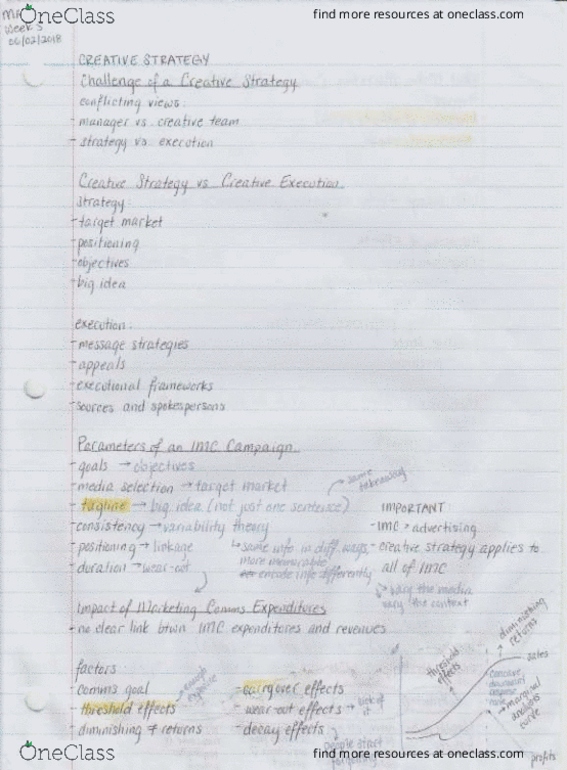 OneClass
find more resources at oneclass.com
Week 5
06/02/2018
CREATIVE STRATEGY
Challenge of a Creative Strategy
conflicting views:
- manager vs creative team
- strategy vs execution
Creative Strategy vs Creative Execution
strategy:
- target market
- positioning
- objectives
- big idea
execution:
- message strategies
- appeals
- executional frameworks
- sources and spokespersons
Parameters of an IMC Campaign
- goals → objectives
- media selection → target market
→ same takeaway
- tagline → big idea (not just one sentence)
- consistency → variability theory
- positioning → linkage
- duration → wear-out
↳ same info in diff. ways,
more memorable
encode info differently
IMPORTANT:
- IMC > advertising
- creative strategy applies to
all of IMC
vary the media
vary the context
Impact of Marketing Comms Expenditures
- no clear link btwn IMC expenditures and revenues
factors
- comms goal
- threshold effects
enough
- diminishing returns
- carryover effects
- wear-out effects → sick of it
- decay effects
people start
forgetting
threshold effects
diminishing returns
sales
concave
downward
marginal
analysis
curve
profits
OneClass
find more resources at oneclass.com